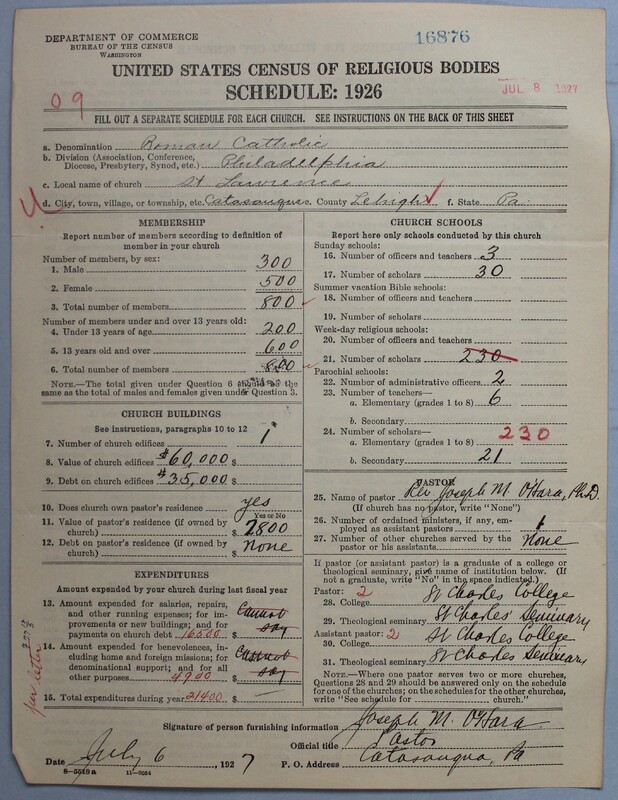 DEPARTMENT OF COMMERCE
BUREAU OF THE CENSUS
WASHINGTON
16876
UNITED STATES CENSUS OF RELIGIOUS BODIES
SCHEDULE: 1926
JUL 8 1927
09
FILL OUT A SEPARATE SCHEDULE FOR EACH CHURCH. SEE INSTRUCTIONS ON THE BACK OF THIS SHEET
a. Denomination Roman Catholic
b. Division (Association, Conference, Diocese, Presbytery, Synod, etc.) Philadelphia
c. Local name of church St Lawrence
d. City, town, village, or township, etc. Catasauqua e. County Lehigh f. State Pa.
MEMBERSHIP
Report number of members according to definition of member in your church
Number of members, by sex:
1. Male 300
2. Female 500
3. Total number of members 800
Number of members under and over 13 years old:
4. Under 13 years of age 200
5. 13 years old and over 600
6. Total number of members 800
NOTE.—The total given under Question 6 should be the same as the total of males and females given under Question 3.
CHURCH BUILDINGS
See instructions, paragraphs 10 to 12
7. Number of church edifices 1
8. Value of church edifices $60,000 $
9. Debt on church edifices $35,000 $
10. Does church own pastor's residence yes
Yes or No
11. Value of pastor's residence (if owned by church) $ 7800
12. Debt on pastor's residence (if owned by church) $ None
EXPENDITURES
Amount expended by your church during last fiscal year
13. Amount expended for salaries, repairs, and other running expenses; for improvements or new buildings; and for payments on church debt 16500 $ Cannot say
14. Amount expended for benevolences, including home and foreign missions; for denominational support; and for all other purposes 4900 $ Cannot say
15. Total expenditures during year 21400 $
per letter
CHURCH SCHOOLS
Report here only schools conducted by this church
Sunday schools:
16. Number of officers and teachers 3
17. Number of scholars 30
Summer vacation Bible schools:
18. Number of officers and teachers
19. Number of scholars
Week-day religious schools:
20. Number of officers and teachers
21. Number of scholars 230
Parochial schools:
22. Number of administrative officers 2
23. Number of teachers—
a. Elementary (grades 1 to 8) 6
b. Secondary
24. Number of scholars—
a. Elementary (grades 1 to 8) 230
b. Secondary 21
PASTOR
25. Name of pastor Rev Joseph M. O'Hara, Ph.D.
(If church has no pastor, write "None")
26. Number of ordained ministers, if any, employed as assistant pastors 1
27. Number of other churches served by the pastor or his assistants None
If pastor (or assistant pastor) is a graduate of a college or theological seminary, give name of institution below. (If not a graduate, write "No" in the space indicated.)
Pastor: 2
28. College St Charles College
29. Theological seminary St Charles Seminary
Assistant pastor: 2
30. College St Charles College
31. Theological seminary St Charles Seminary
NOTE.—Where one pastor serves two or more churches, Questions 28 and 29 should be answered only on the schedule for one of the churches; on the schedules for the other churches, write "See schedule for church."
Signature of person furnishing information Joseph M. O'Hara
Official title Pastor
Date July 6, 1927 P. O. Address Catasauqua, Pa
8—5519a 11—9054